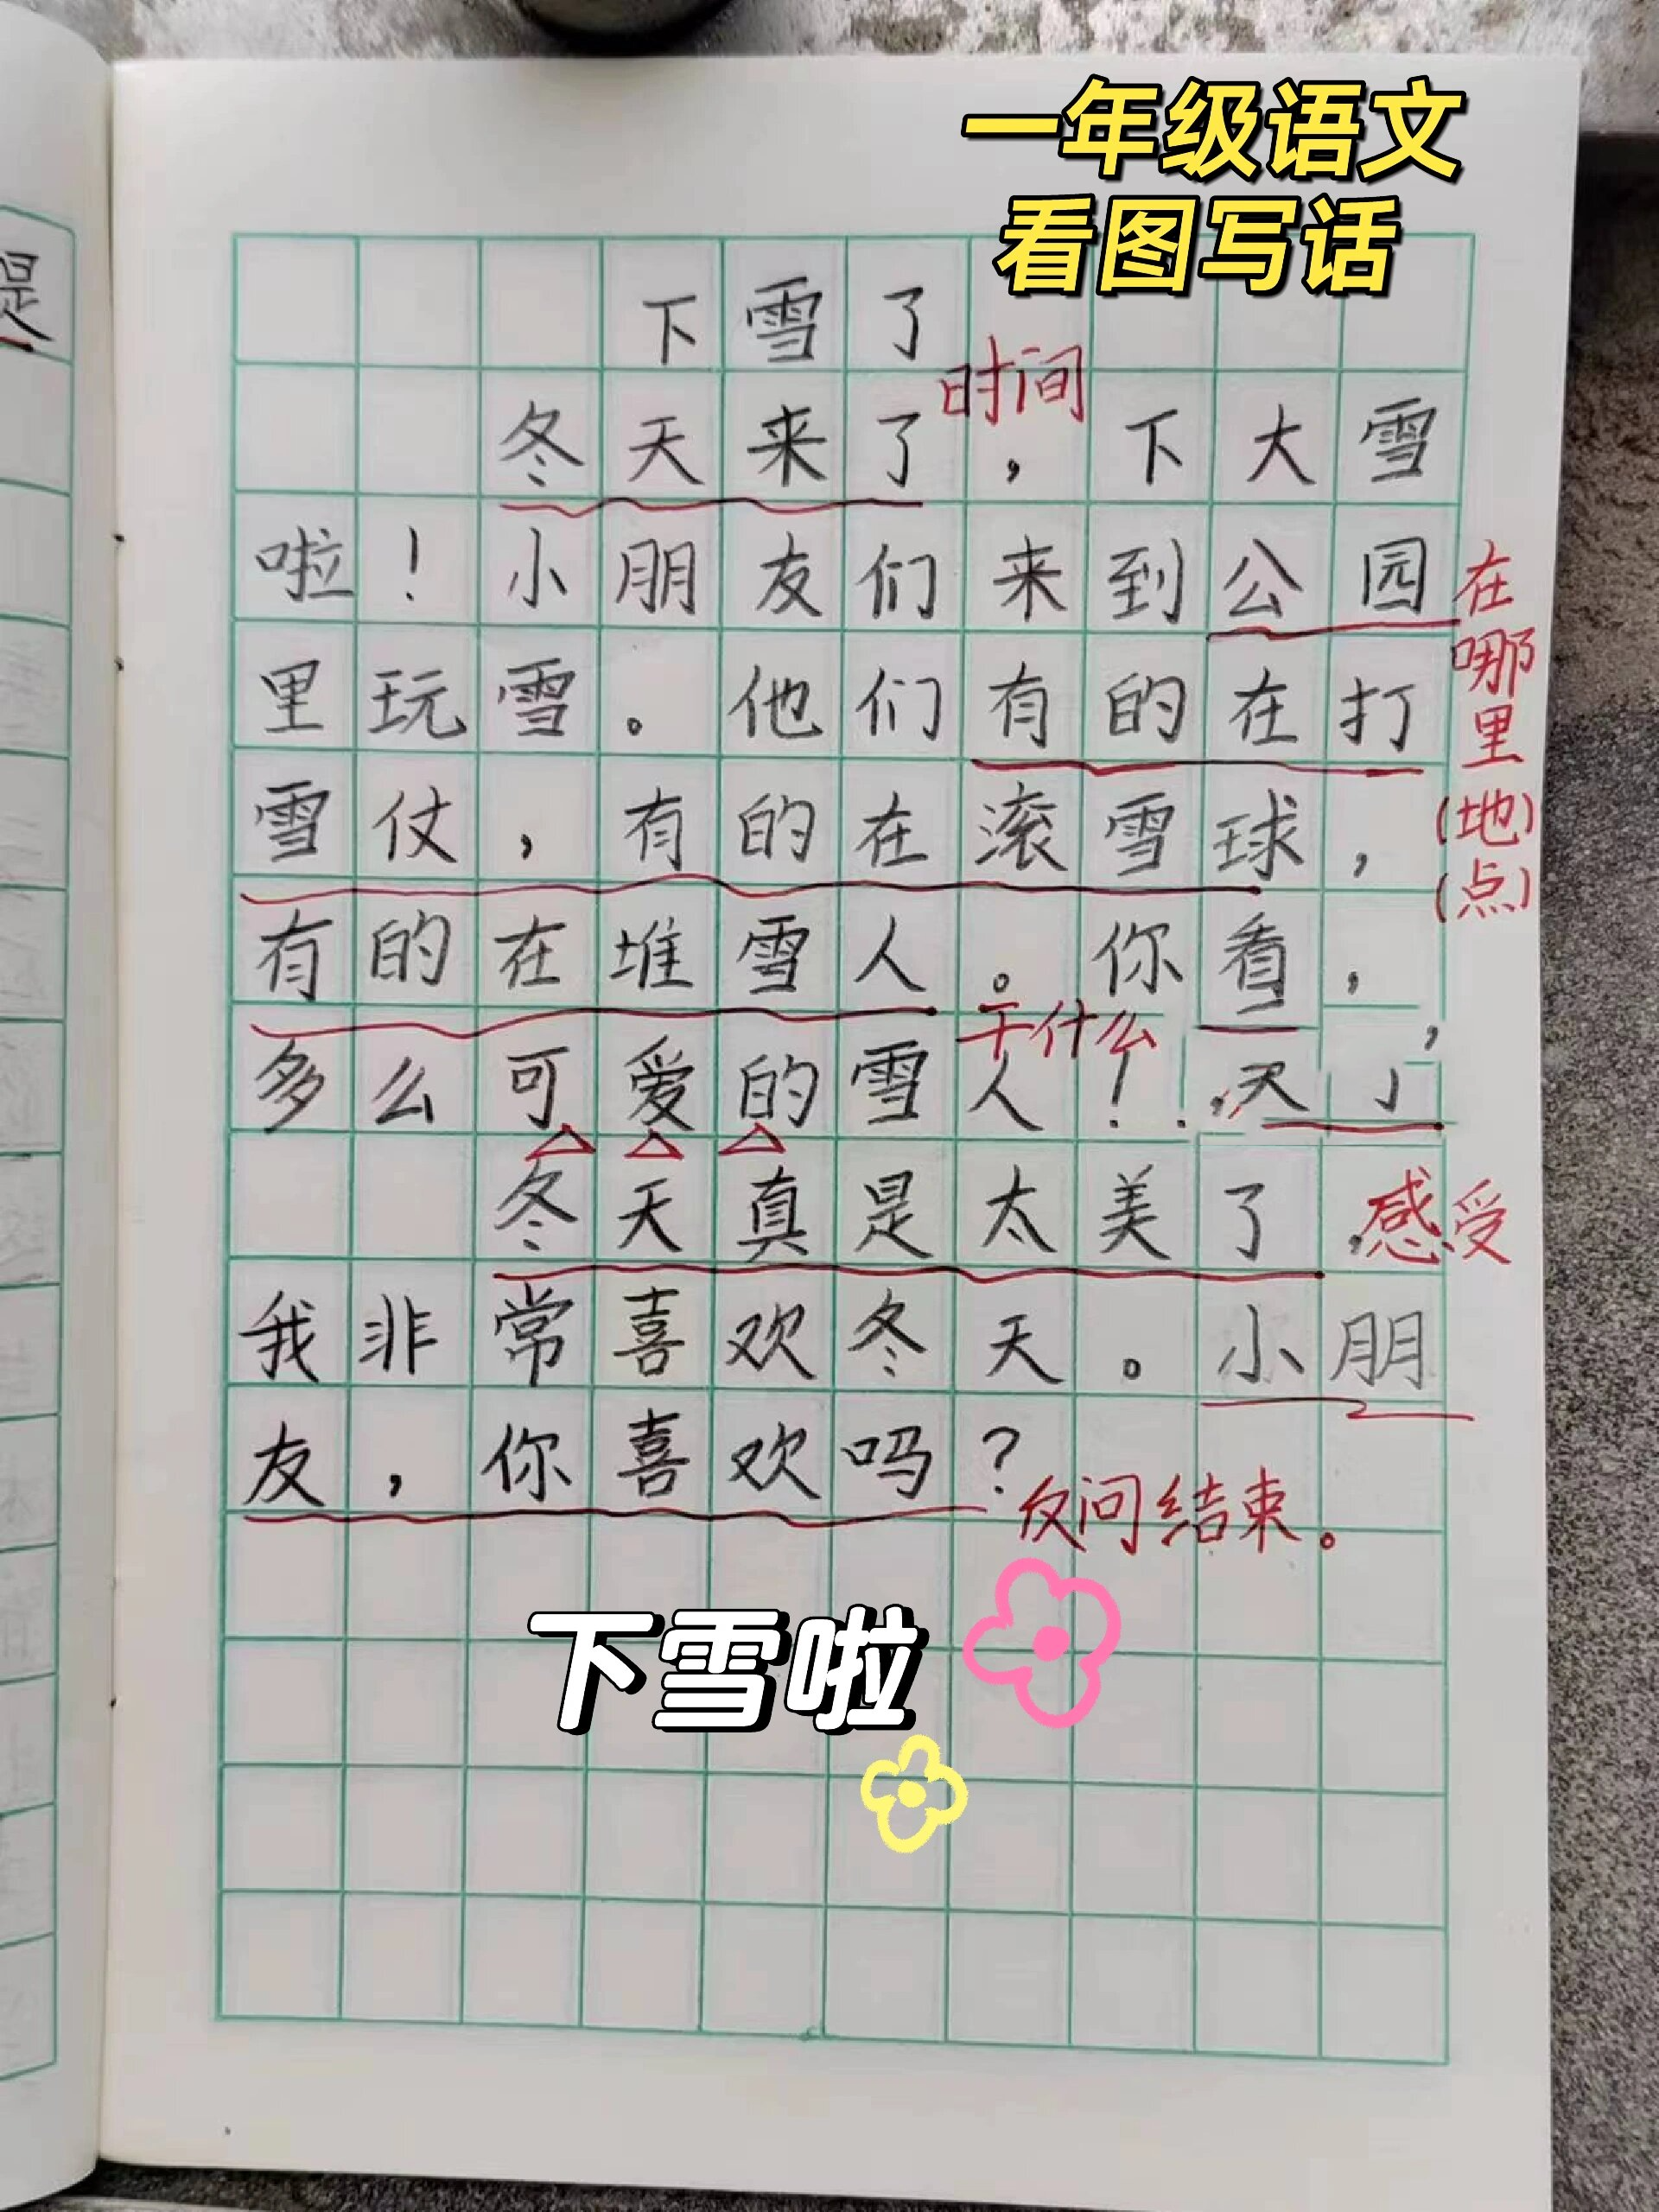 一年级语文
看图写话
是
下雪了
时间
冬天来了，下大雪
啦！小朋友们来到公园
在哪里(地)(点)
里玩雪。他们有的在打
雪仗，有的在滚雪球，
有的在堆雪人。你看，
干什么
多么可爱的雪人！
冬天真是太美了，
感受
我非常喜欢冬天。小朋
友，你喜欢吗？
反问结束。
下雪啦